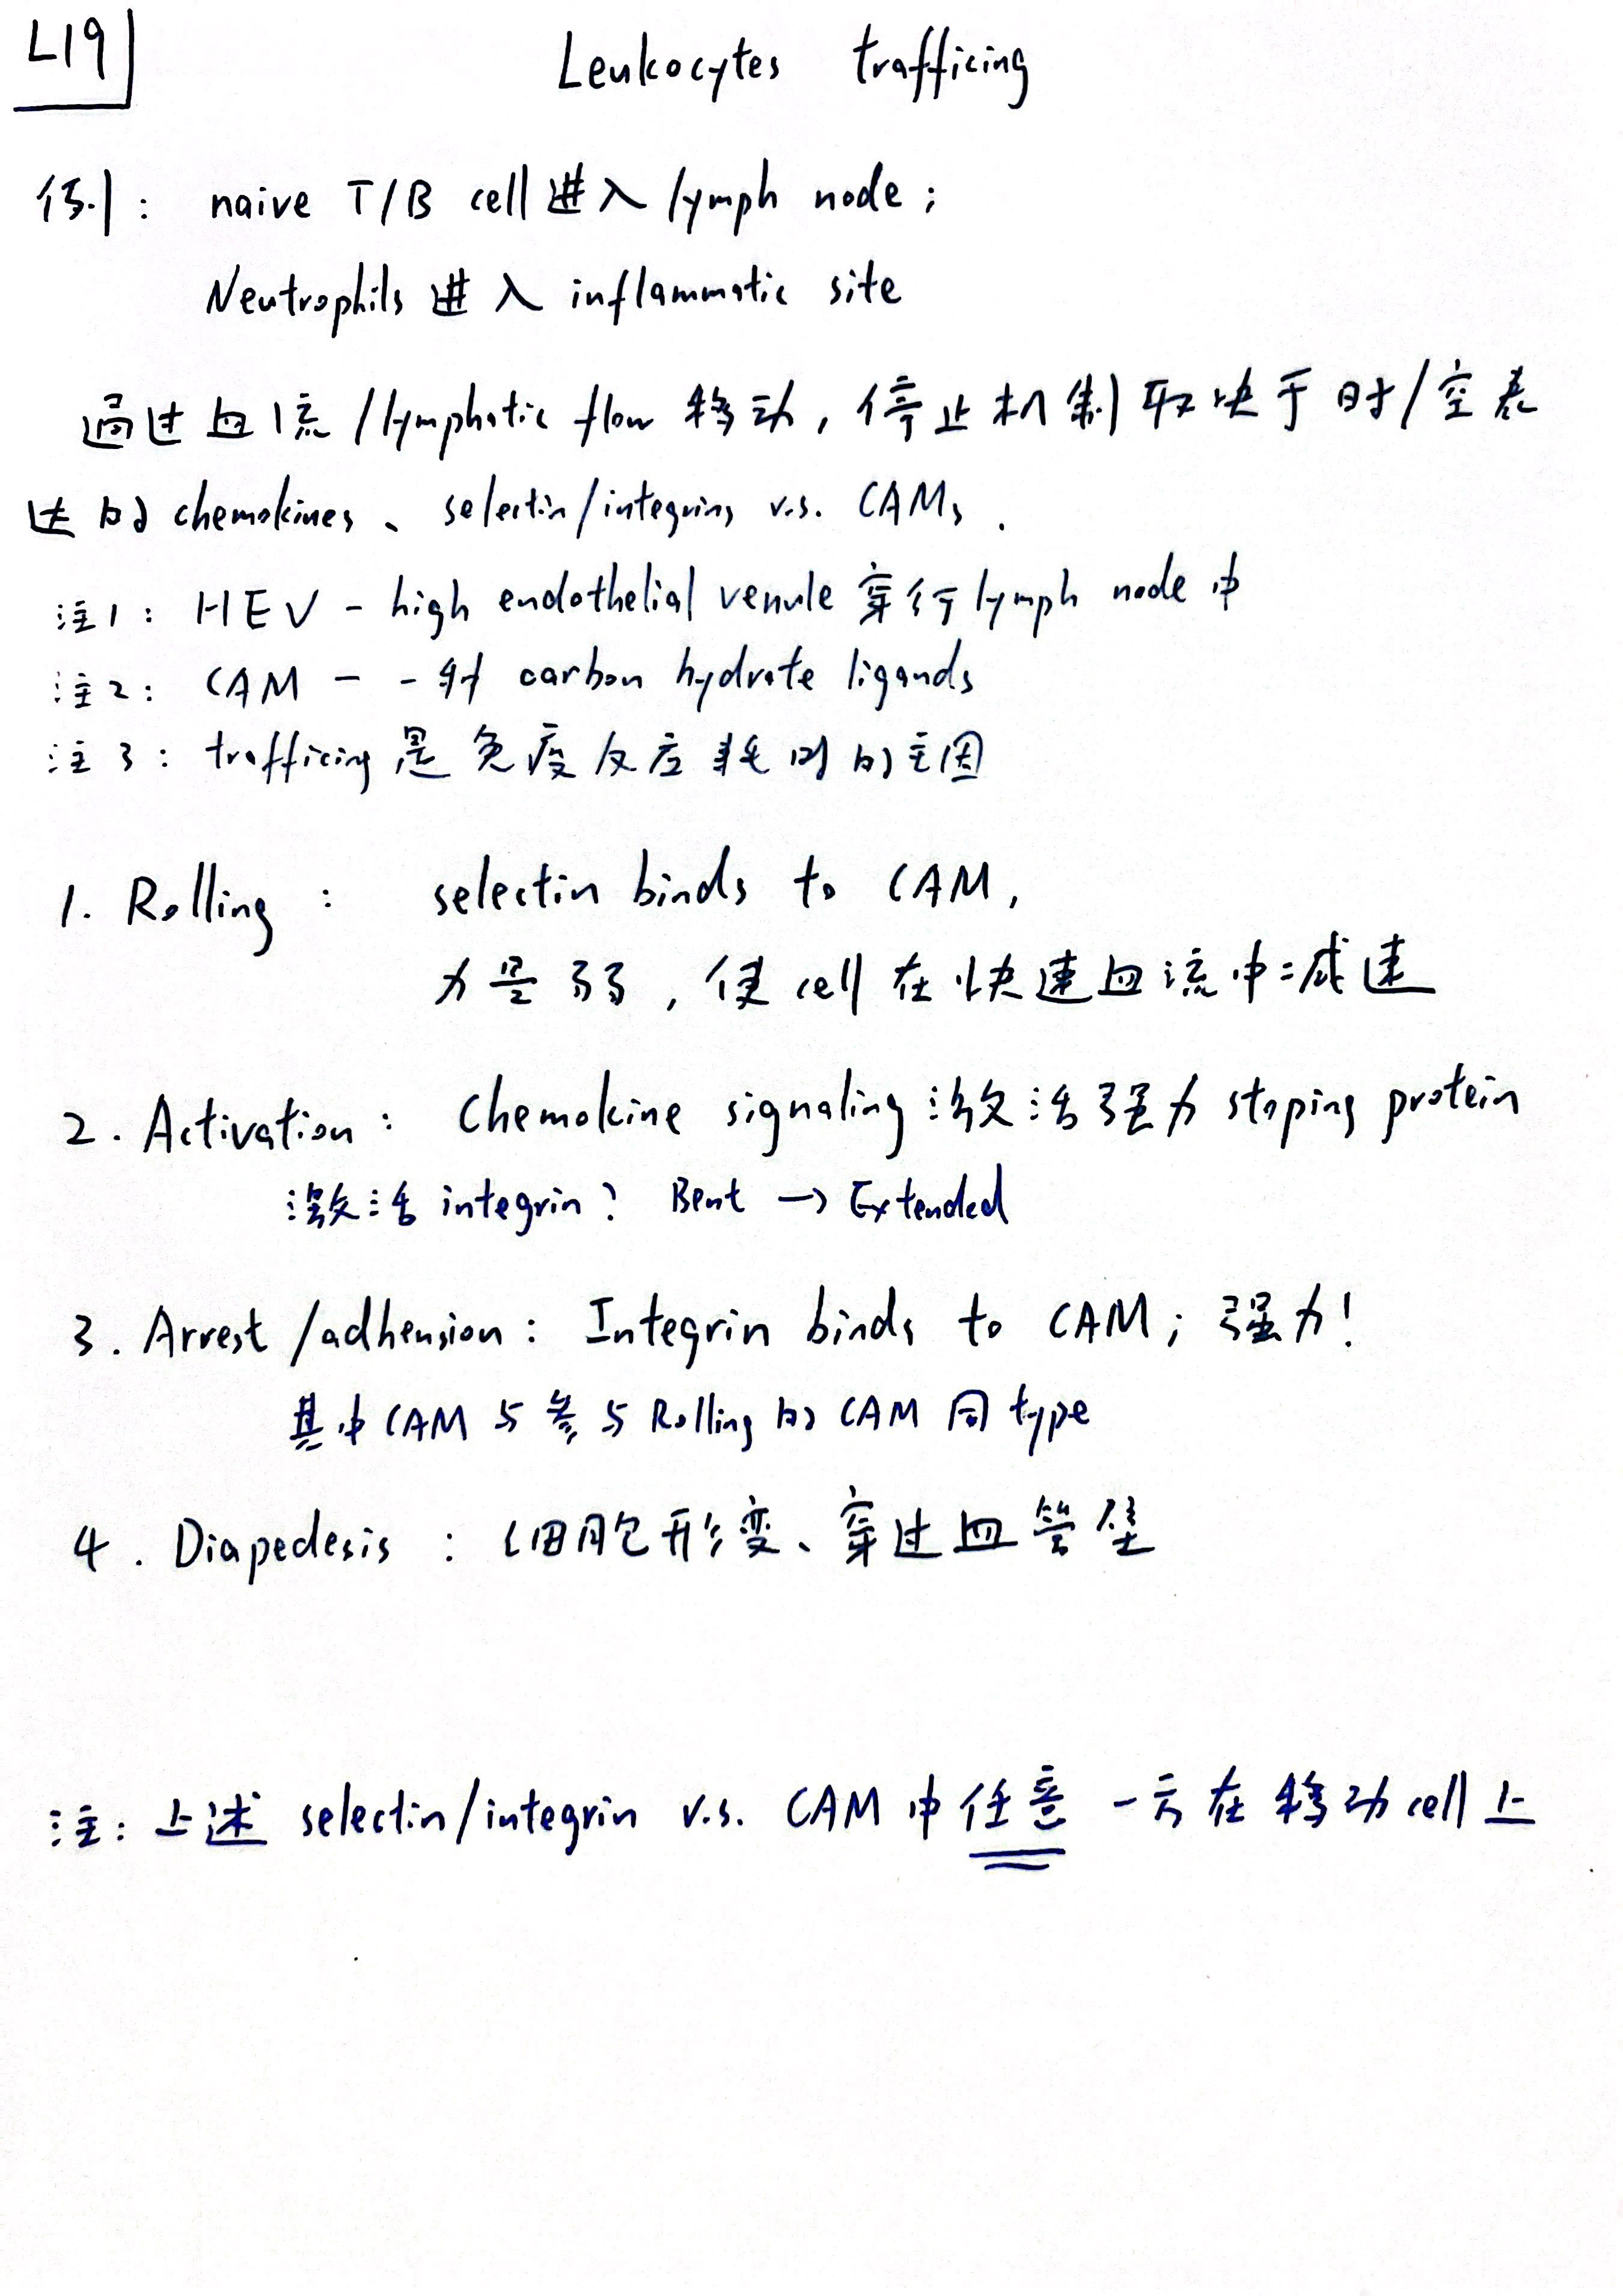 L19
Leukocytes trafficing
例: naive T/B cell 进入 lymph node ;
Neutrophils 进入 inflammatic site
通过血流/lymphatic flow 移动, 停止机制取决于时/空表
达的 chemokines、selectin/integrins v.s. CAMs .
注1: HEV - high endothelial venule 穿行 lymph node 中
注2: CAM - 一种 carbon hydrate ligands
注3: trafficing 是免疫反应耗时的主因
1. Rolling : selectin binds to CAM,
力量弱, 使 cell 在快速血流中减速
2. Activation : Chemokine signaling 激活强力 stoping protein
激活 integrin? Bent → Extended
3. Arrest /adhension : Integrin binds to CAM; 强力!
其中 CAM 与参与 Rolling 的 CAM 同 type
4. Diapedesis : 细胞形变、穿过血管壁
注: 上述 selectin/integrin v.s. CAM 中任意一方在移动 cell 上